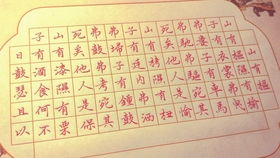 山有樞隰有榆
子有衣裳弗曳
弗婁子有車馬
弗馳弗驅宛其
死矣他人是愉
山有栲隰有杻
子有廷內弗洒
弗埽子有鐘鼓
弗鼓弗考宛其
死矣他人是保
山有漆隰有栗
子有酒食何不
日鼓瑟且以